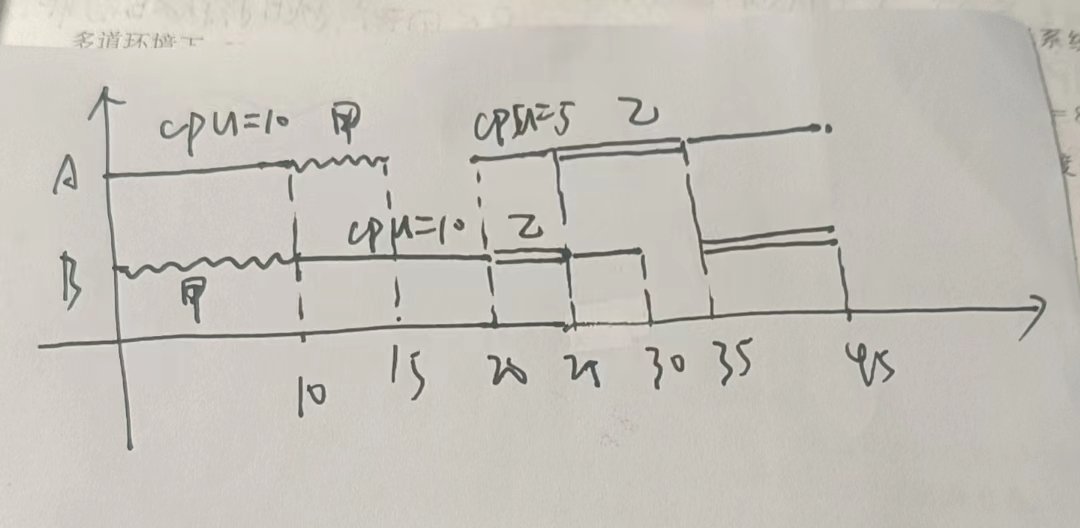 多道环境下
系统
cpu=10 甲 cpu=5 乙
A
cpu=10 乙
B
甲
10 15 20 25 30 35 45